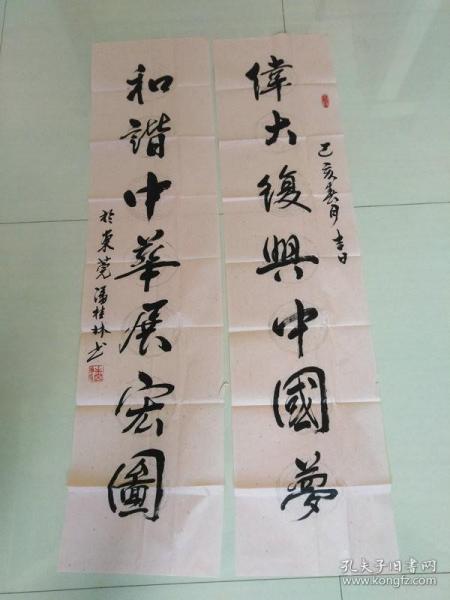 偉大復興中國夢
己亥春月吉日
和諧中華展宏圖
於東莞馮桂林书
孔夫子旧书网
www.kongfz.com